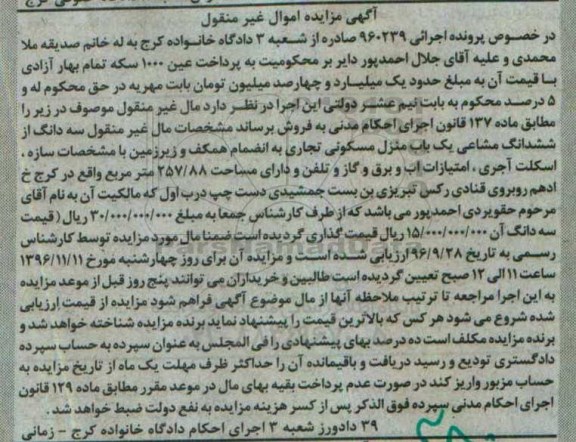 آگهی مزایده اموال غیر منقول
در خصوص پرونده اجرائی ۹۶۰۲۳۹ صادره از شعبه ۳ دادگاه خانواده کرج به له خانم صدیقه ملا
محمدی و علیه آقای جلال احمدپور دایر بر محکومیت به پرداخت عین ۱۰۰۰ سکه تمام بهار آزادی
با قیمت آن به مبلغ حدود یک میلیارد و چهارصد میلیون تومان بابت مهریه در حق محکوم له و
۵ درصد محکوم به بابت نیم عشر دولتی این اجرا در نظر دارد مال غیر منقول موصوف در زیر را
مطابق ماده ۱۳۷ قانون اجرای احکام مدنی به فروش برساند مشخصات مال غیر منقول سه دانگ از
ششدانگ مشاعی یک باب منزل مسکونی تجاری به انضمام همکف و زیرزمین با مشخصات سازه ،
اسکلت آجری ، امتیازات اب و برق و گاز و تلفن و دارای مساحت ۲۵۷/۸۸ متر مربع واقع در کرج خ
ادهم روبروی قنادی رکس تبریزی بن بست جمشیدی دست چپ درب اول که مالکیت آن به نام آقای
مرحوم حقویردی احمدپور می باشد که از طرف کارشناس جمعا به مبلغ ۳۰/۰۰۰/۰۰۰/۰۰۰ ریال ( قیمت
سه دانگ آن ۱۵/۰۰۰/۰۰۰/۰۰۰ ریال قیمت گذاری گردیده است ضمنا مال مورد مزایده توسط کارشناس
رسمی به تاریخ ۹۶/۹/۲۸ ارزیابی شده است و مزایده آن برای روز چهارشنبه مورخ ۱۳۹۶/۱۱/۱۱
ساعت ۱۱ الی ۱۲ صبح تعیین گردیده است طالبین و خریداران می توانند پنج روز قبل از موعد مزایده
به این اجرا مراجعه تا ترتیب ملاحظه آنها از مال موضوع آگهی فراهم شود مزایده از قیمت ارزیابی
شده شروع می شود هر کس که بالاترین قیمت را پیشنهاد نماید برنده مزایده شناخته خواهد شد و
برنده مزایده مکلف است ده درصد بهای پیشنهادی را فی المجلس به عنوان سپرده به حساب سپرده
دادگستری تودیع و رسید دریافت و باقیمانده آن را حداکثر ظرف مهلت یک ماه از تاریخ مزایده به
حساب مزبور واریز کند در صورت عدم پرداخت بقیه بهای مال در موعد مقرر مطابق ماده ۱۲۹ قانون
اجرای احکام مدنی سپرده فوق الذکر پس از کسر هزینه مزایده به نفع دولت ضبط خواهد شد .
۳۹ دادورز شعبه ۳ اجرای احکام دادگاه خانواده کرج - زمانی